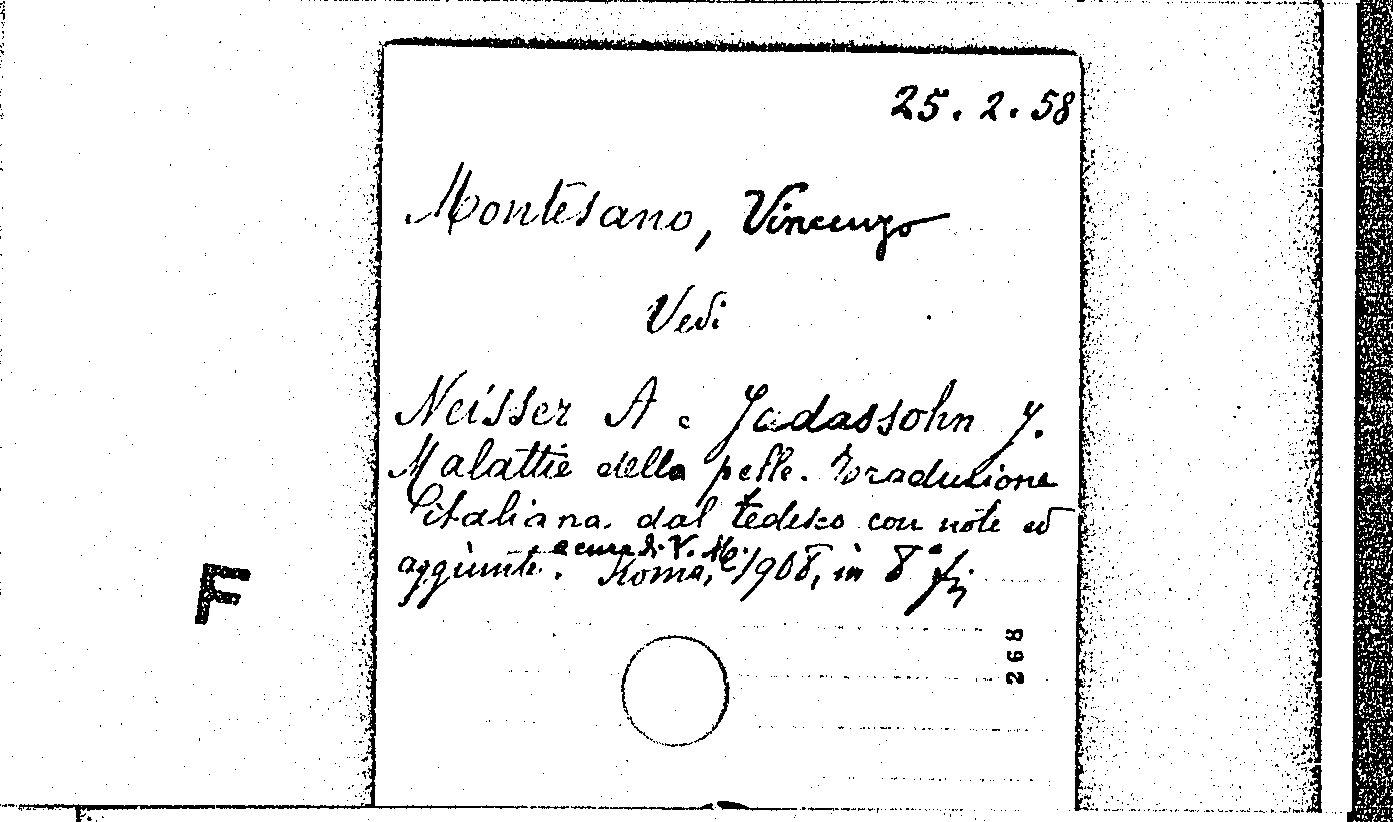 25. 2. 58
Montesano, Vincenzo
Vedi
Neisser A e Jadassohn J.
Malattie della pelle. Traduzione
italiana dal tedesco con note ed
a cura di V. M.
aggiunte. Roma, 1908, in 8°
F
268